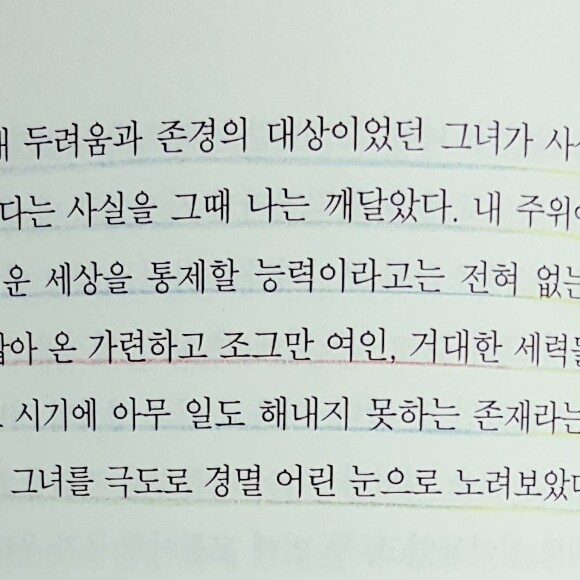 두려움과 존경의 대상이었던 그녀가
다는 사실을 그때 나는 깨달았다. 내 주위
운 세상을 통제할 능력이라고는 전혀 없는
아 온 가련하고 조그만 여인, 거대한 세력
시기에 아무 일도 해내지 못하는 존재라는
그녀를 극도로 경멸 어린 눈으로 노려보았다